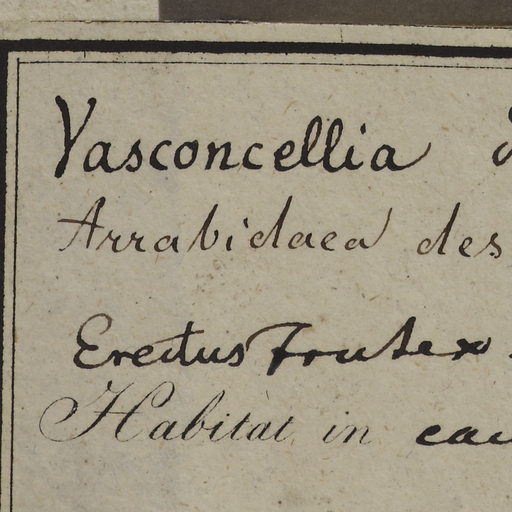 Vasconcellia
Arrabidaea des
Erectus frutex
Habitat in cau